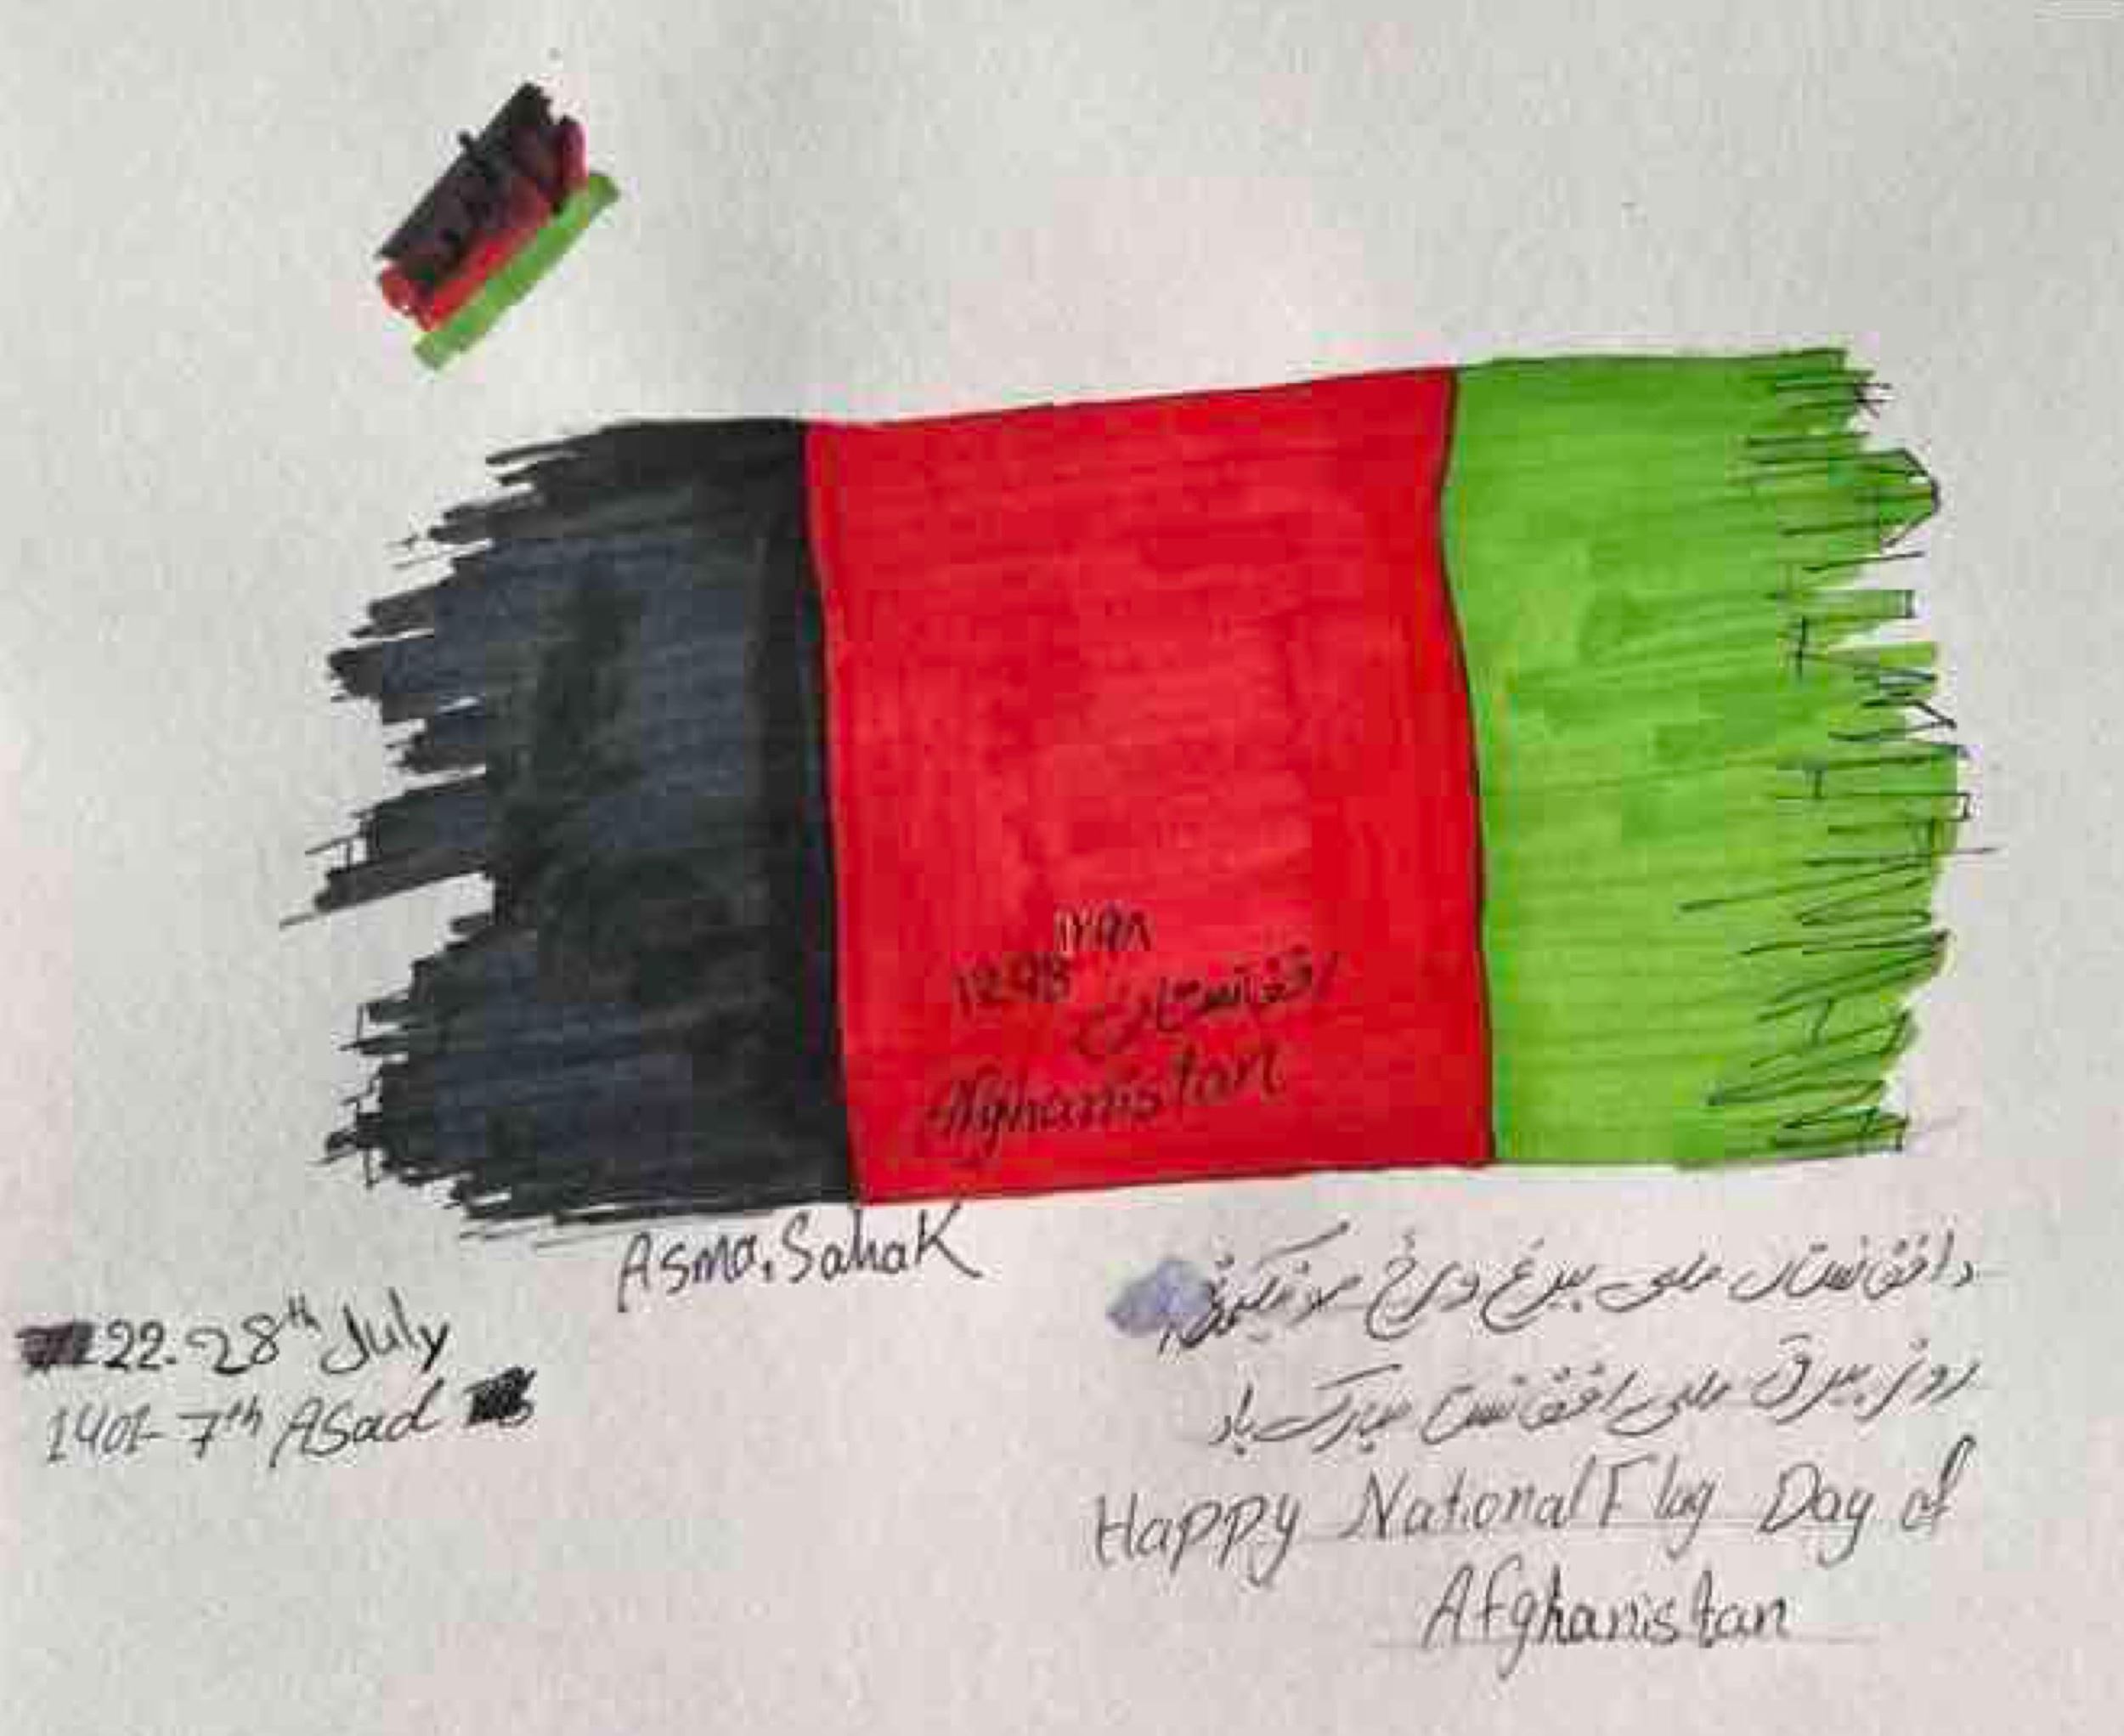 ۱۲۹۸
1298
افغانستان
Afghanistan
Asma.Sahak
22.28th July
1401-7th Asad
د افغانستان ملي بیرغ ورځ مو
روز بیرق ملی افغانست مبارک باد
Happy National Flag Day of
Afghanistan